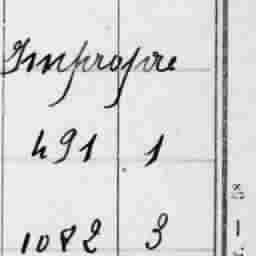 Impropre
491 1
1082 3